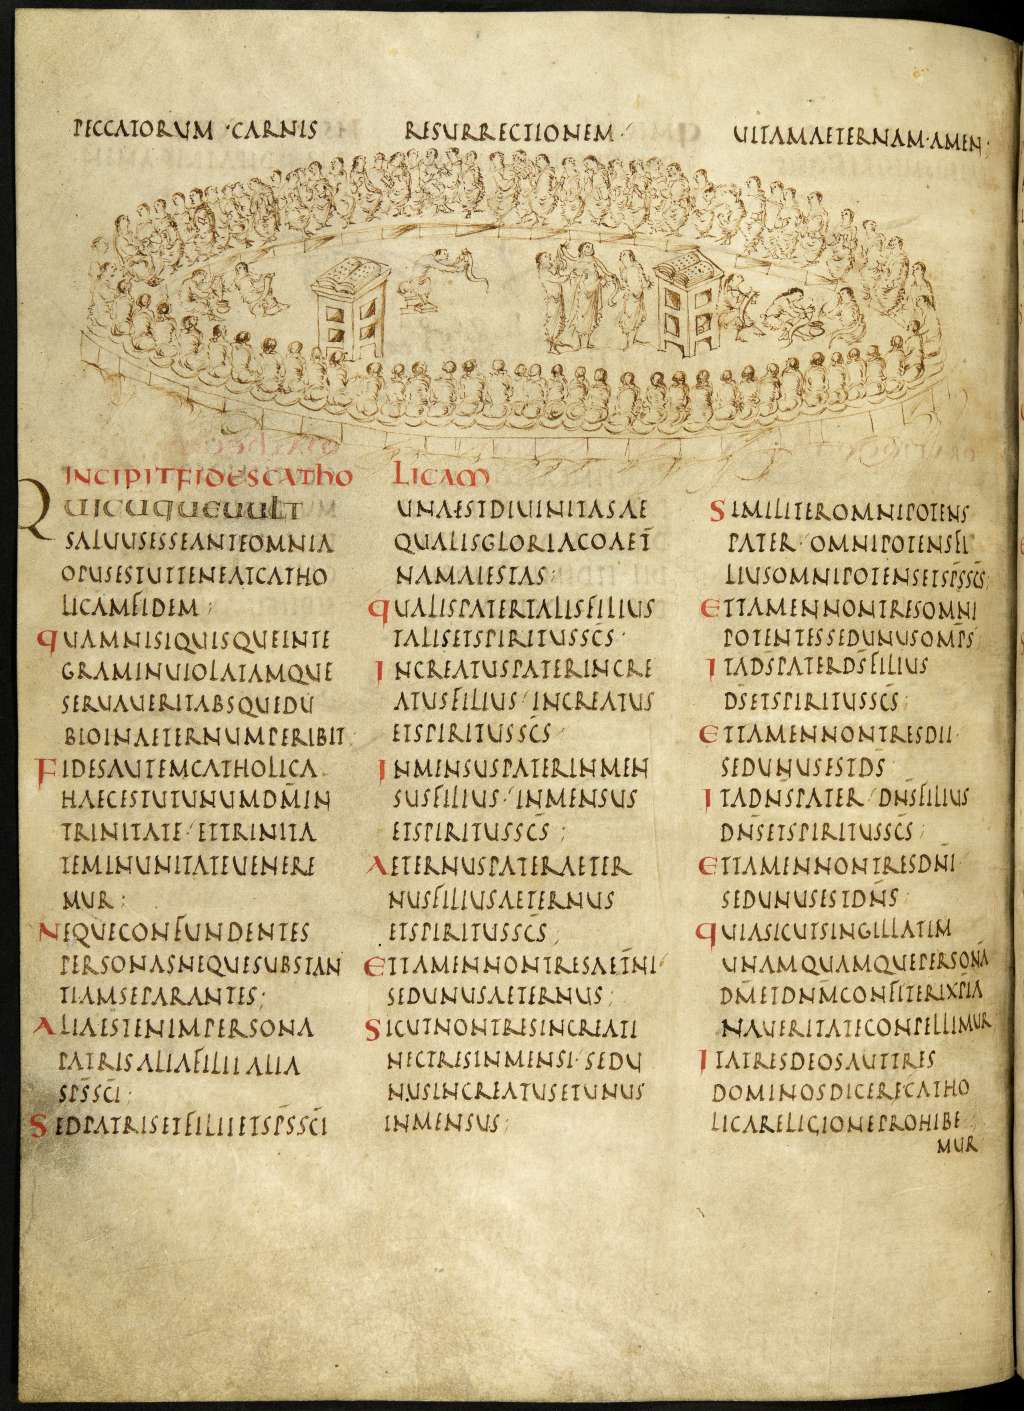 PECCATORUM · CARNIS RESURRECTIONEM · UITAM AETERNAM · AMEN ;
INCIPIT FIDES CATHO LICAM
QUICUQUE UULT
SALUUS ESSE ANTE OMNIA
OPUS EST UT TENEAT CATHO
LICAM FIDEM ;
QUAM NISI QUISQUE INTE
GRAM INUIOLATAMQUE
SERUAUERIT ABSQUE DU
BIO IN AETERNUM PERIBIT
FIDES AUTEM CATHOLICA
HAEC EST UT UNUM DM̄ IN
TRINITATE · ET TRINITA
TEM IN UNITATE UENERE
MUR ;
NEQUE CONFUNDENTES
PERSONAS NEQUE SUBSTAN
TIAM SEPARANTES ;
ALIA EST ENIM PERSONA
PATRIS ALIA FILII ALIA
SPS̄ SCI ;
SED PATRIS ET FILII ET SPS̄ SCI
UNA EST DIUINITAS AE
QUALIS GLORIA COAET̄
NA MAIESTAS ;
QUALIS PATER TALIS FILIUS
TALIS ET SPIRITUS SCS̄ ·
INCREATUS PATER INCRE
ATUS FILIUS · INCREATUS
ET SPIRITUS SCS̄ ;
INMENSUS PATER INMEN
SUS FILIUS · INMENSUS
ET SPIRITUS SCS̄ ;
AETERNUS PATER AETER
NUS FILIUS AETERNUS
ET SPIRITUS SCS̄ ;
ET TAMEN NON TRES AET̄NI ·
SED UNUS AETERNUS ;
SICUT NON TRES INCREATI
NEC TRES INMENSI · SED U
NUS INCREATUS ET UNUS
INMENSUS ;
SIMILITER OMNIPOTENS
PATER · OMNIPOTENS FI
LIUS OMNIPOTENS ET SPS̄ SCS̄
ET TAMEN NON TRES OMNI
POTENTES SED UNUS OMPS̄
ITA DS̄ PATER DS̄ FILIUS
DS̄ ET SPIRITUS SCS̄ ;
ET TAMEN NON TRES DII
SED UNUS EST DS̄ ·
ITA DNS̄ PATER · DNS̄ FILIUS
DNS̄ ET SPIRITUS SCS̄ ;
ET TAMEN NON TRES DNI
SED UNUS EST DNS̄ ·
QUIA SICUT SINGILLATIM
UNAMQUAMQUE PERSONĀ
DM̄ ET DNM̄ CONFITERI XPIA
NA UERITATE CONPELLIMUR
ITA TRES DEOS AUT TRES
DOMINOS DICERE CATHO
LICA RELIGIONE PROHIBE
MUR